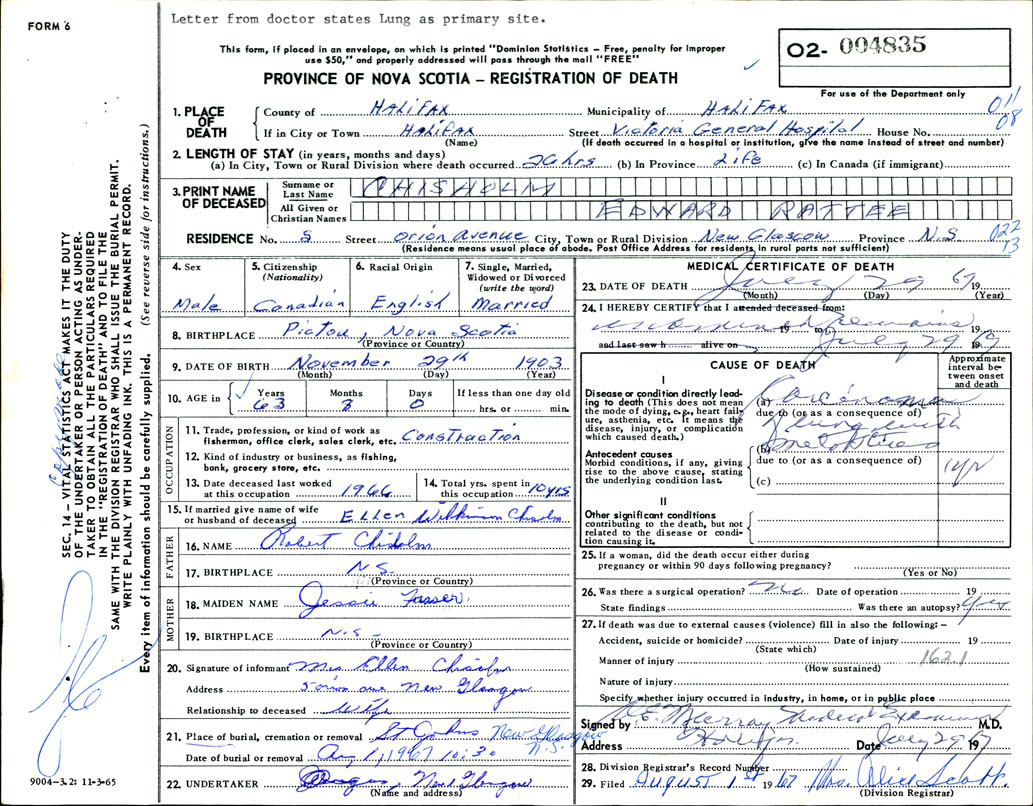 Letter from doctor states Lung as primary site.
FORM 6
This form, if placed in an envelope, on which is printed "Dominion Statistics – Free, penalty for improper
use $50," and properly addressed will pass through the mail "FREE"
PROVINCE OF NOVA SCOTIA – REGISTRATION OF DEATH
02- 004835
For use of the Department only
011
08
1. PLACE OF DEATH
County of HALIFAX Municipality of HALIFAX
If in City or Town HALIFAX Street Victoria General Hospital House No.
(Name) (If death occurred in a hospital or institution, give the name instead of street and number)
2. LENGTH OF STAY (in years, months and days)
(a) In City, Town or Rural Division where death occurred 26 hrs (b) In Province Life (c) In Canada (if immigrant)
3. PRINT NAME OF DECEASED
Surname or Last Name CHISHOLM
All Given or Christian Names EDWARD RATTEE
RESIDENCE No. 5 Street Orion Avenue City, Town or Rural Division New Glasgow Province N.S 022
13
(Residence means usual place of abode. Post Office Address for residents in rural parts not sufficient)
4. Sex
Male
5. Citizenship
(Nationality)
Canadian
6. Racial Origin
English
7. Single, Married,
Widowed or Divorced
(write the word)
Married
8. BIRTHPLACE Pictou, Nova Scotia
(Province or Country)
9. DATE OF BIRTH November 29th 1903
(Month) (Day) (Year)
10. AGE in
Years 63
Months 8
Days 0
If less than one day old
hrs. or min.
OCCUPATION
11. Trade, profession, or kind of work as
fisherman, office clerk, sales clerk, etc. Construction
12. Kind of industry or business, as fishing,
bank, grocery store, etc.
13. Date deceased last worked
at this occupation 1966
14. Total yrs. spent in
this occupation 10 yrs
15. If married give name of wife
or husband of deceased Ellen Wilkinson Chisholm
FATHER
16. NAME Robert Chisholm
17. BIRTHPLACE N.S.
(Province or Country)
MOTHER
18. MAIDEN NAME Jessie Fraser
19. BIRTHPLACE N.S -
(Province or Country)
20. Signature of informant Mrs Ellen Chisholm
Address 5 orion ave New Glasgow
Relationship to deceased Wife
21. Place of burial, cremation or removal St Johns New Glasgow
N.S.
Date of burial or removal Aug 1, 1967 10:30
22. UNDERTAKER New Glasgow
(Name and address)
MEDICAL CERTIFICATE OF DEATH
23. DATE OF DEATH July 29 1967
(Month) (Day) (Year)
24. I HEREBY CERTIFY that I attended deceased from:
examined remains 19 to 19
and last saw h alive on July 29 1967
CAUSE OF DEATH
Approximate
interval be-
tween onset
and death
I
Disease or condition directly lead-
ing to death (This does not mean
the mode of dying, e.g., heart fail-
ure, asthenia, etc. It means the
disease, injury, or complication
which caused death.)
(a) Carcinoma
due to (or as a consequence of)
lung with
(b) metastases
Antecedent causes
Morbid conditions, if any, giving
rise to the above cause, stating
the underlying condition last.
due to (or as a consequence of)
(c)
1 yr
II
Other significant conditions
contributing to the death, but not
related to the disease or condi-
tion causing it.
25. If a woman, did the death occur either during
pregnancy or within 90 days following pregnancy?
(Yes or No)
26. Was there a surgical operation? No Date of operation 19
State findings Was there an autopsy? Yes
27. If death was due to external causes (violence) fill in also the following: –
Accident, suicide or homicide? Date of injury 19
(State which)
Manner of injury 162.1
(How sustained)
Nature of injury
Specify whether injury occurred in industry, in home, or in public place
Signed by Murray Medical Examiner M.D.
Address Halifax Date July 29 1967
28. Division Registrar's Record Number
29. Filed August 1st 1967 Mrs. Alice Scott.
(Division Registrar)
SEC. 14 – VITAL STATISTICS ACT MAKES IT THE DUTY
OF THE UNDERTAKER OR PERSON ACTING AS UNDER-
TAKER TO OBTAIN ALL THE PARTICULARS REQUIRED
IN THE "REGISTRATION OF DEATH" AND TO FILE THE
SAME WITH THE DIVISION REGISTRAR WHO SHALL ISSUE THE BURIAL PERMIT.
WRITE PLAINLY WITH UNFADING INK. THIS IS A PERMANENT RECORD.
Every item of information should be carefully supplied. (See reverse side for instructions.)
9004-3.2: 11-3-65